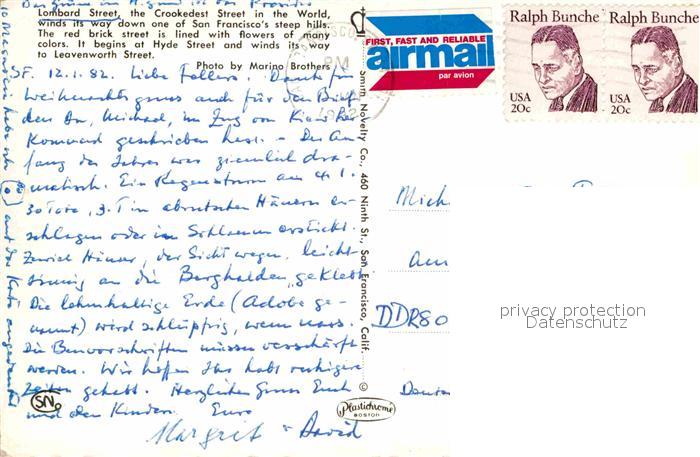 Lombard Street, the Crookedest Street in the World,
winds its way down one of San Francisco's steep hills.
The red brick street is lined with flowers of many
colors. It begins at Hyde Street and winds its way
to Leavenworth Street.
Photo by Marino Brothers
FIRST, FAST AND RELIABLE
airmail
par avion
Ralph Bunche
USA
20c
Ralph Bunche
USA
20c
PM
SF. 12.1.82. Liebe Fallers. Danke für
Weihnachtsgruss auch für den Brief
den Du, Michael, im Zug von
geschrieben hast. - Der An-
fang des Jahres war ziemlich dra-
matisch. Ein Regensturm am 4.1.
30 Tote, z. T. in abrutschen Häusern er-
schlagen oder im Schlamm erstickt.
Zuviele Häuser, der Sicht wegen, leicht-
sinnig an die Berghalden "geklebt"
Die lehmhaltige Erde (Adobe ge-
nannt) wird schlüpfrig, wenn nass.
Die Bauvorschriften müssen verschärft
werden. Wir hoffen Ihr habt ruhigere
Zeiten gehabt. Herzlichen Gruss Euch
und den Kindern. Eure
Margrit + David
Smith Novelty Co., 460 Ninth St., San Francisco, Calif.
©
SN
Plastichrome
BOSTON
Mich
DDR 80
privacy protection
Datenschutz